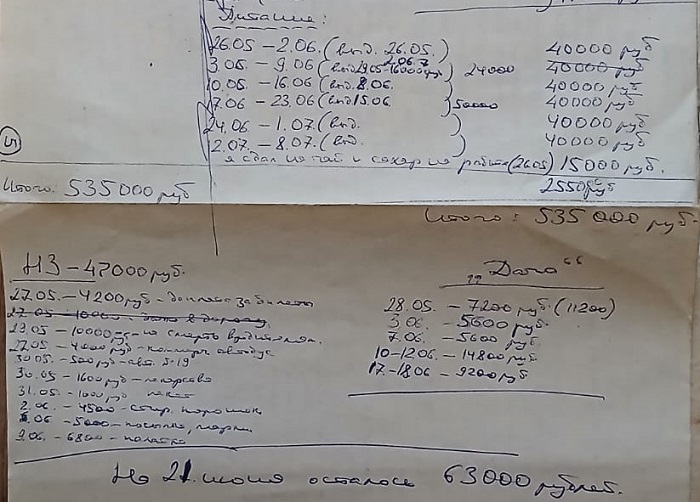 Питание:
26.05 – 2.06. (выд. 26.05.) 40000 руб
3.05 – 9.06 (выд 29.05-16000 руб 2.06. 24000 40000 руб
10.05 – 16.06 (выд. 8.06. 40000 руб
17.06 – 23.06 (выд 15.06 ) 50000 40000 руб
24.06 – 1.07. (выд. ) 40000 руб
2.07. – 8.07. (выд. ) 40000 руб
я сдал на чай и сахар на (26.05) 15000 руб.
5
Итого. 535000 руб
255000 руб
Итого: 535000 руб.
НЗ – 47000 руб.
27.05. – 4200 руб – доплата за билеты
27.05 – 10000 – в дорогу
29.05 – 10000 руб – на
27.05 – 4000 руб – автобус
30.05 – 500 руб – 19
30.05 – 1600 руб – лекарство
31.05 – 1000 руб пакет
2.06. – 4500 – стир. порошок
.06 – 5000 – марки
9.06. – 6800 –
"Дача"
28.05. – 7200 руб. (11200)
3.06. – 5600 руб.
7.06. – 5600 руб.
10-12.06. – 14800 руб.
17-18.06 – 9200 руб
На 21. июня осталось 63000 рублей.